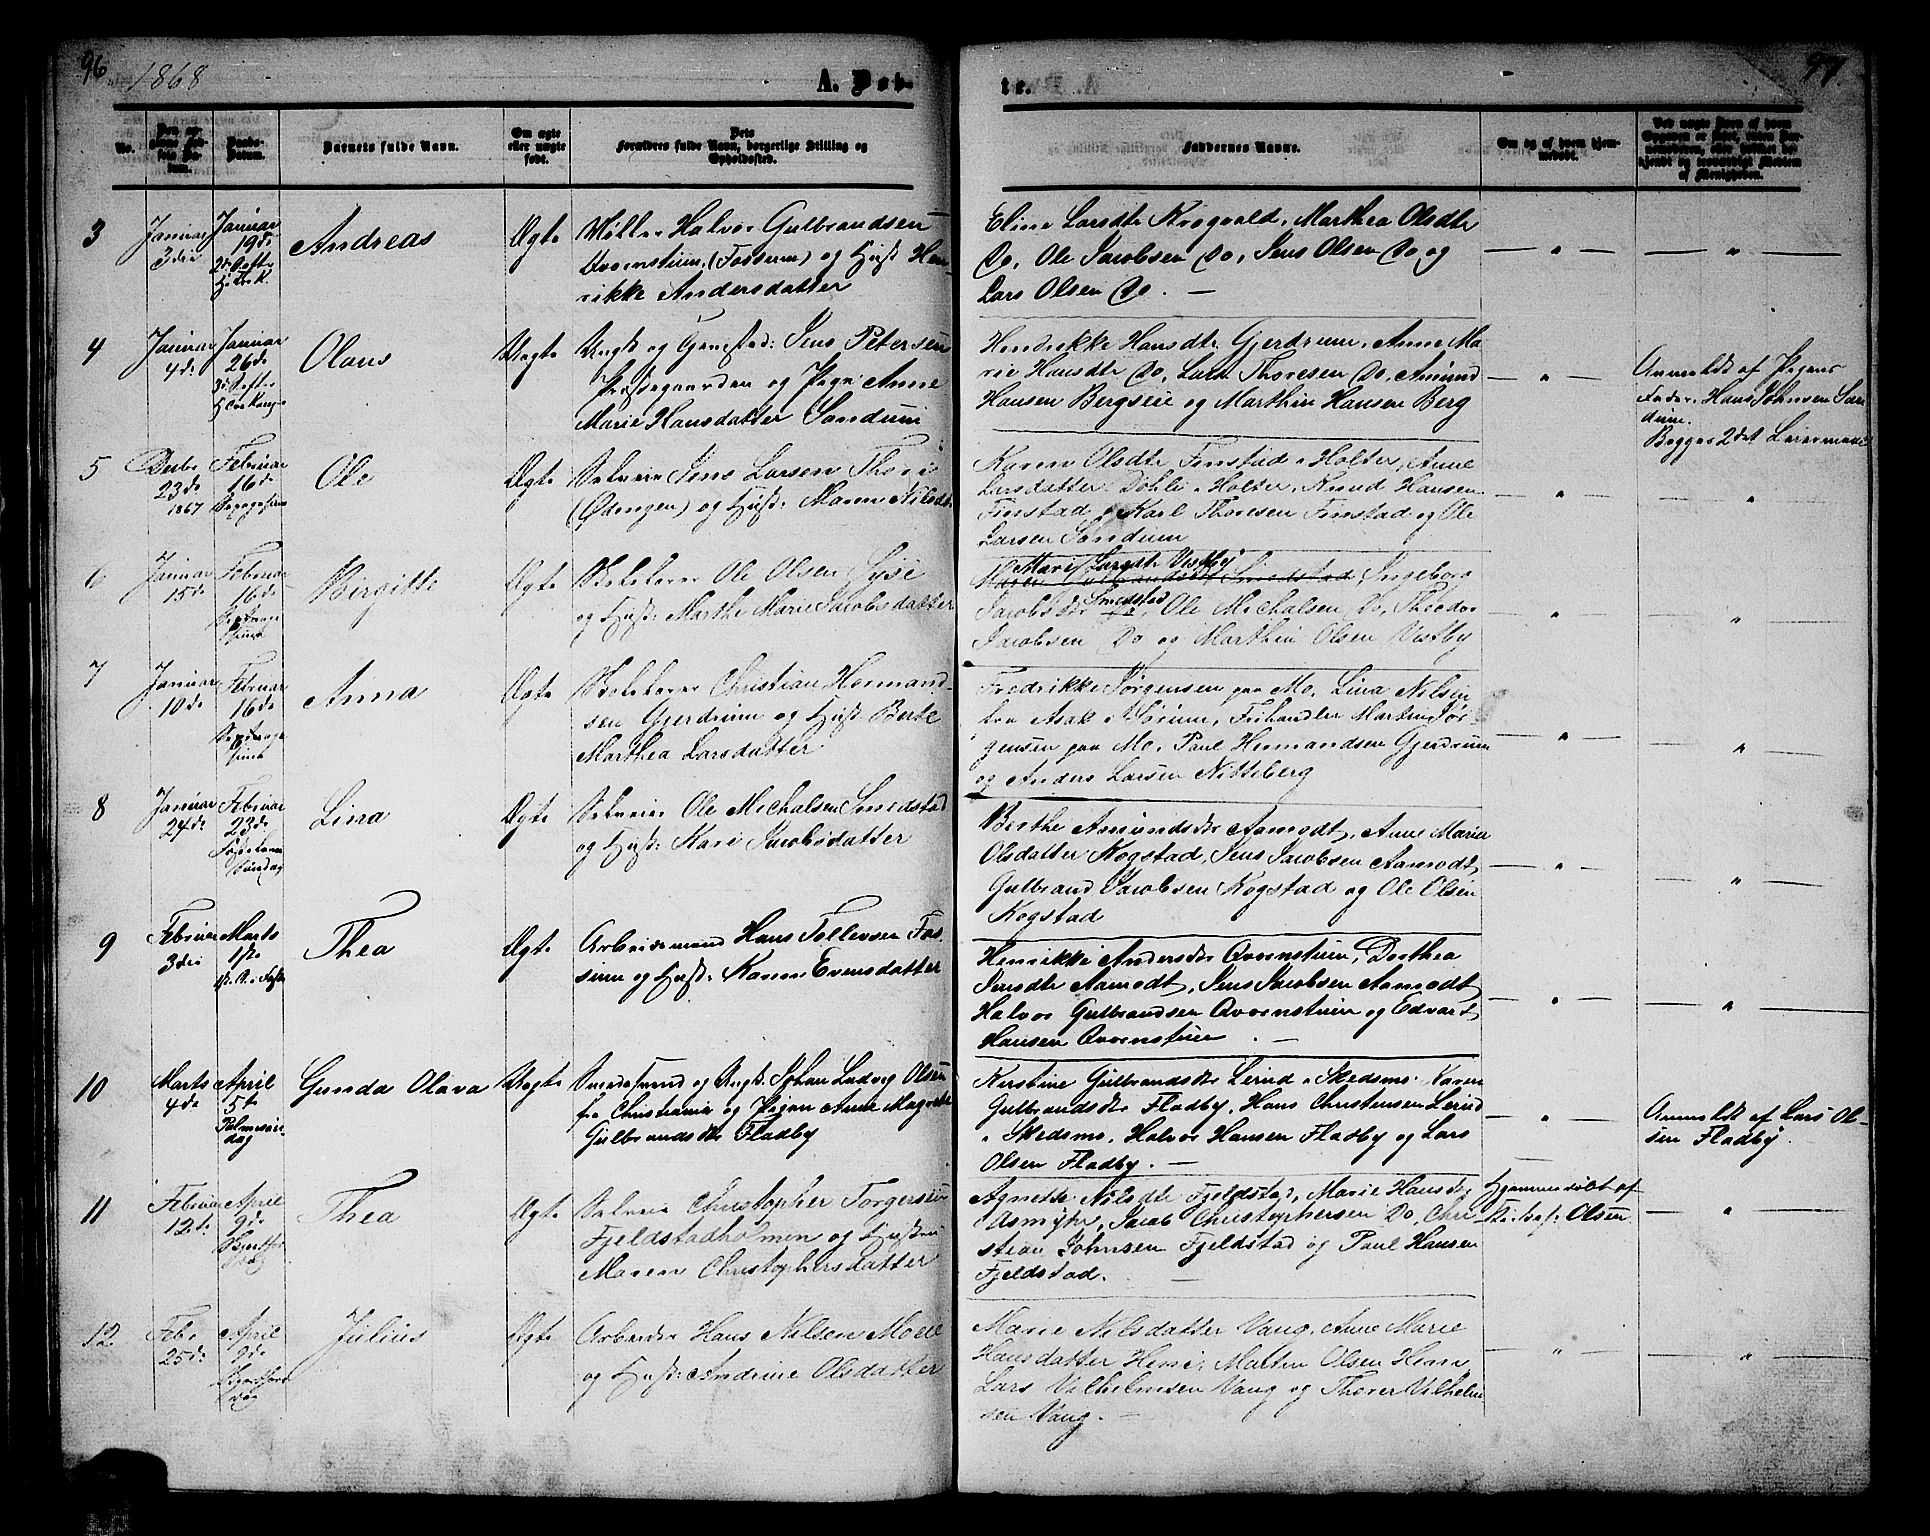 96
1868
A. Døb-
te.
97.
No.
Barnets fulde Navn.
Om ægte
eller uægte
født.
Forældres fulde Navn, borgerlige Stilling og
Opholdssted.
Faddernes Navne.
Om og af hvem hjem-
medøbt.
3
Januar
3die
Januar
19de
Andreas
Ægte
Møller Halvor Gulbrandsen
Qvernstuen, (Fossum) og Hust. Hen-
rikke Andersdatter
Eline Larsdtr Krogvold, Marthea Olsdtr
Do, Ole Jacobsen Do, Jens Olsen Do og
Lars Olsen Do. —
— " —
— " —
4
Januar
4de
Januar
26de
Olaus
Uægte
Ungk og Jens Petersen
Præstegaarden og Pige Anne
Marie Hansdatter Sandum
Hendrikke Hansdtr Gjerdrum, Anne Ma-
rie Hansdtr Do, Lars Thoresen Do, Amund
Hansen Bergseie og Marthin Hansen Berg
— " —
Anmeldt af Pigens
Fader Hans Johnsen San-
dum.
Begges 2det Leiermaal
5
Decbr
23de
1867
Februar
16de
Ole
Ægte
Selveier Jens Larsen
(Ødengen) og Hust: Maren Nilsdtr
Karen Olsdtr Finstad i Holter, Anne
Larsdatter Dohli i Holter, Knud Hansen
Finstad, Karl Thoresen Finstad og Ole
Larsen Sandum
— " —
"
6
Januar
15de
Februar
16de
Birgitte
Ægte
Ole Olsen Gjse
og Hust: Marthe Marie Jacobsdatter
Marie Larsdtr Vestby
Smedstad, Ingeborg
Jacobsdtr Smedstad, Ole Michalsen Do, Theodor
Jacobsen Do og Marthin Olsen Vestby
— " —
"
7
Januar
10de
Februar
16de
Anna
Ægte
Christian Hermand-
sen Gjerdrum og Hust Berte
Marthea Larsdatter
Fredrikke Jørgensen paa Mo, Lina Nilsen
fra Asak i Sørum, Frihandler Martin Jør-
gensen paa Mo, Paul Hermandsen Gjerdrum
og Anders Larsen Nitteberg
— " —
— " —
8
Januar
24de
Februar
23de
Lina
Ægte
Selveier Ole Michalsen Smedstad
og Hust: Kari Jacobsdatter
Berthe Amundsdtr Aamodt, Anne Marie
Olsdatter Kogstad, Jens Jacobsen Aamodt,
Gulbrand Jacobsen Kogstad og Ole Olsen
Kogstad
— " —
— " —
9
Februar
3die
Marts
1ste
Thea
Ægte
Arbeidsmand Hans Tollevsen Fos-
sum og Hust: Karen Evensdatter
Henrikke Andersdtr Qvernstuen, Dorthea
Jensdtr Aamodt, Jens Jacobsen Aamodt,
Halvor Gulbrandsen Qvernstuen og Edvart
Hansen Qvernstuen. —
— " —
— " —
10
Marts
4de
April
5te
Palmesøn-
dag
Gunda Olava
Uægte
Smedesvend og Ungk. Johan Ludvig Olsen
fra Christiania og Pigen Anne Magrethe
Gulbrandsdtr Fladby
Kirstine Gulbrandsdtr Leirud i Skedsmo, Karen
Gulbrandsdtr Fladby, Hans Christensen Leirud
i Skedsmo, Halvor Hansen Fladby og Lars
Olsen Fladby. —
— " —
Anmeldt af Lars Ol-
sen Fladby.
11
Februar
12de
April
9de
Thea
Ægte
Selveier Christopher Torgersen
Fjeldstadholmen og Hustru
Maren Christophersdatter
Agnethe Nilsdtr Fjeldstad, Marie Hansdtr
Asmyhr, Jacob Christophersen Do, Chri-
stian Johnsen Fjeldstad og Paul Hansen
Fjeldstad. —
Hjemmedøbt af
Olsen
— " —
12
Febr
25de
April
9de
Julius
Ægte
Arbeider Hans Nilsen Moe
og Hust: Andrine Olsdatter
Marie Nilsdatter Vang, Anne Marie
Hansdatter Heni, Matten Olsen Heni,
Lars Vilhelmsen Vang og Thorer Vilhelm-
sen Vang. —
— " —
— " —